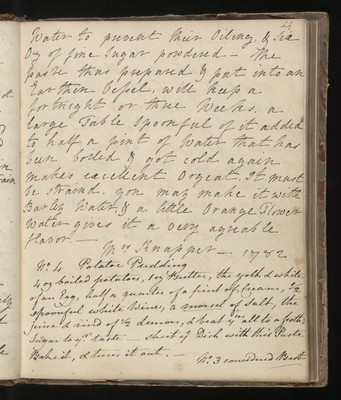 24
Water to prevent their Oiling, & Six
Oz of fine Sugar powdered – The
paste thus prepared & put into an
Earthen Vessel, will keep a
fortnight or three Weeks. a
large Table Spoonful of it added
to half a pint of Water that has
been boiled & got cold again
makes excellent Orgeat. It must
be strained. you may make it with
Barley Water, & a little Orange Flower
Water gives it a very agreable
flavor. –
Mrs Knapper – 1782
No. 4 Potatoe Pudding
4 oz boiled potatoes, 4 oz Butter, the yolk & white
of an Egg, half a quarter of a pint of Cream, 1/2
spoonful white Wine, a morsel of salt, the
juice & rind of 1/2 Lemon, & beat ym all to a froth,
Sugar to yr taste – sheet yr Dish with thin Paste
Bake it, & turn it out. – No. 3 considered Best